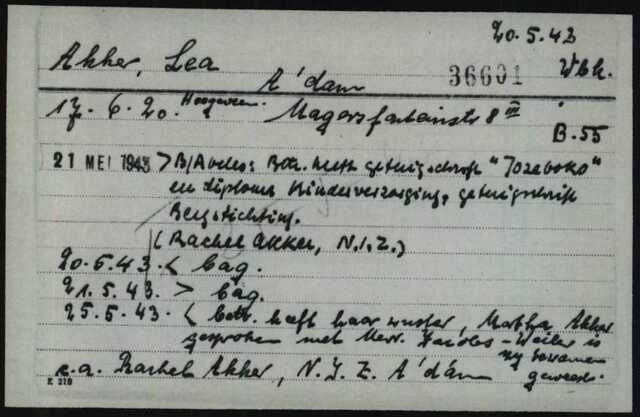 20.5.43
Akker, Lea
A'dam
36601
Vbk.
17. 6. 20. Hoogeveen. Magersfonteinstr 8 III
B. 55
21 MEI 1943 > B/Abeles: Betr. heeft getuigschrift "Jozeboko"
en diploma Kinderverzorging, getuigschrift
Bergstichting.
(Rachel Akker, N.I.Z.)
20.5.43. < bag.
21.5.43. > bag.
25.5.43. < betr. heeft haar zuster, Martha Akker
gesproken met Mevr. Jacobs-Weiler is
zij tesamen
geweest.
c.a. Rachel Akker, N.I.Z. A'dam
K 210